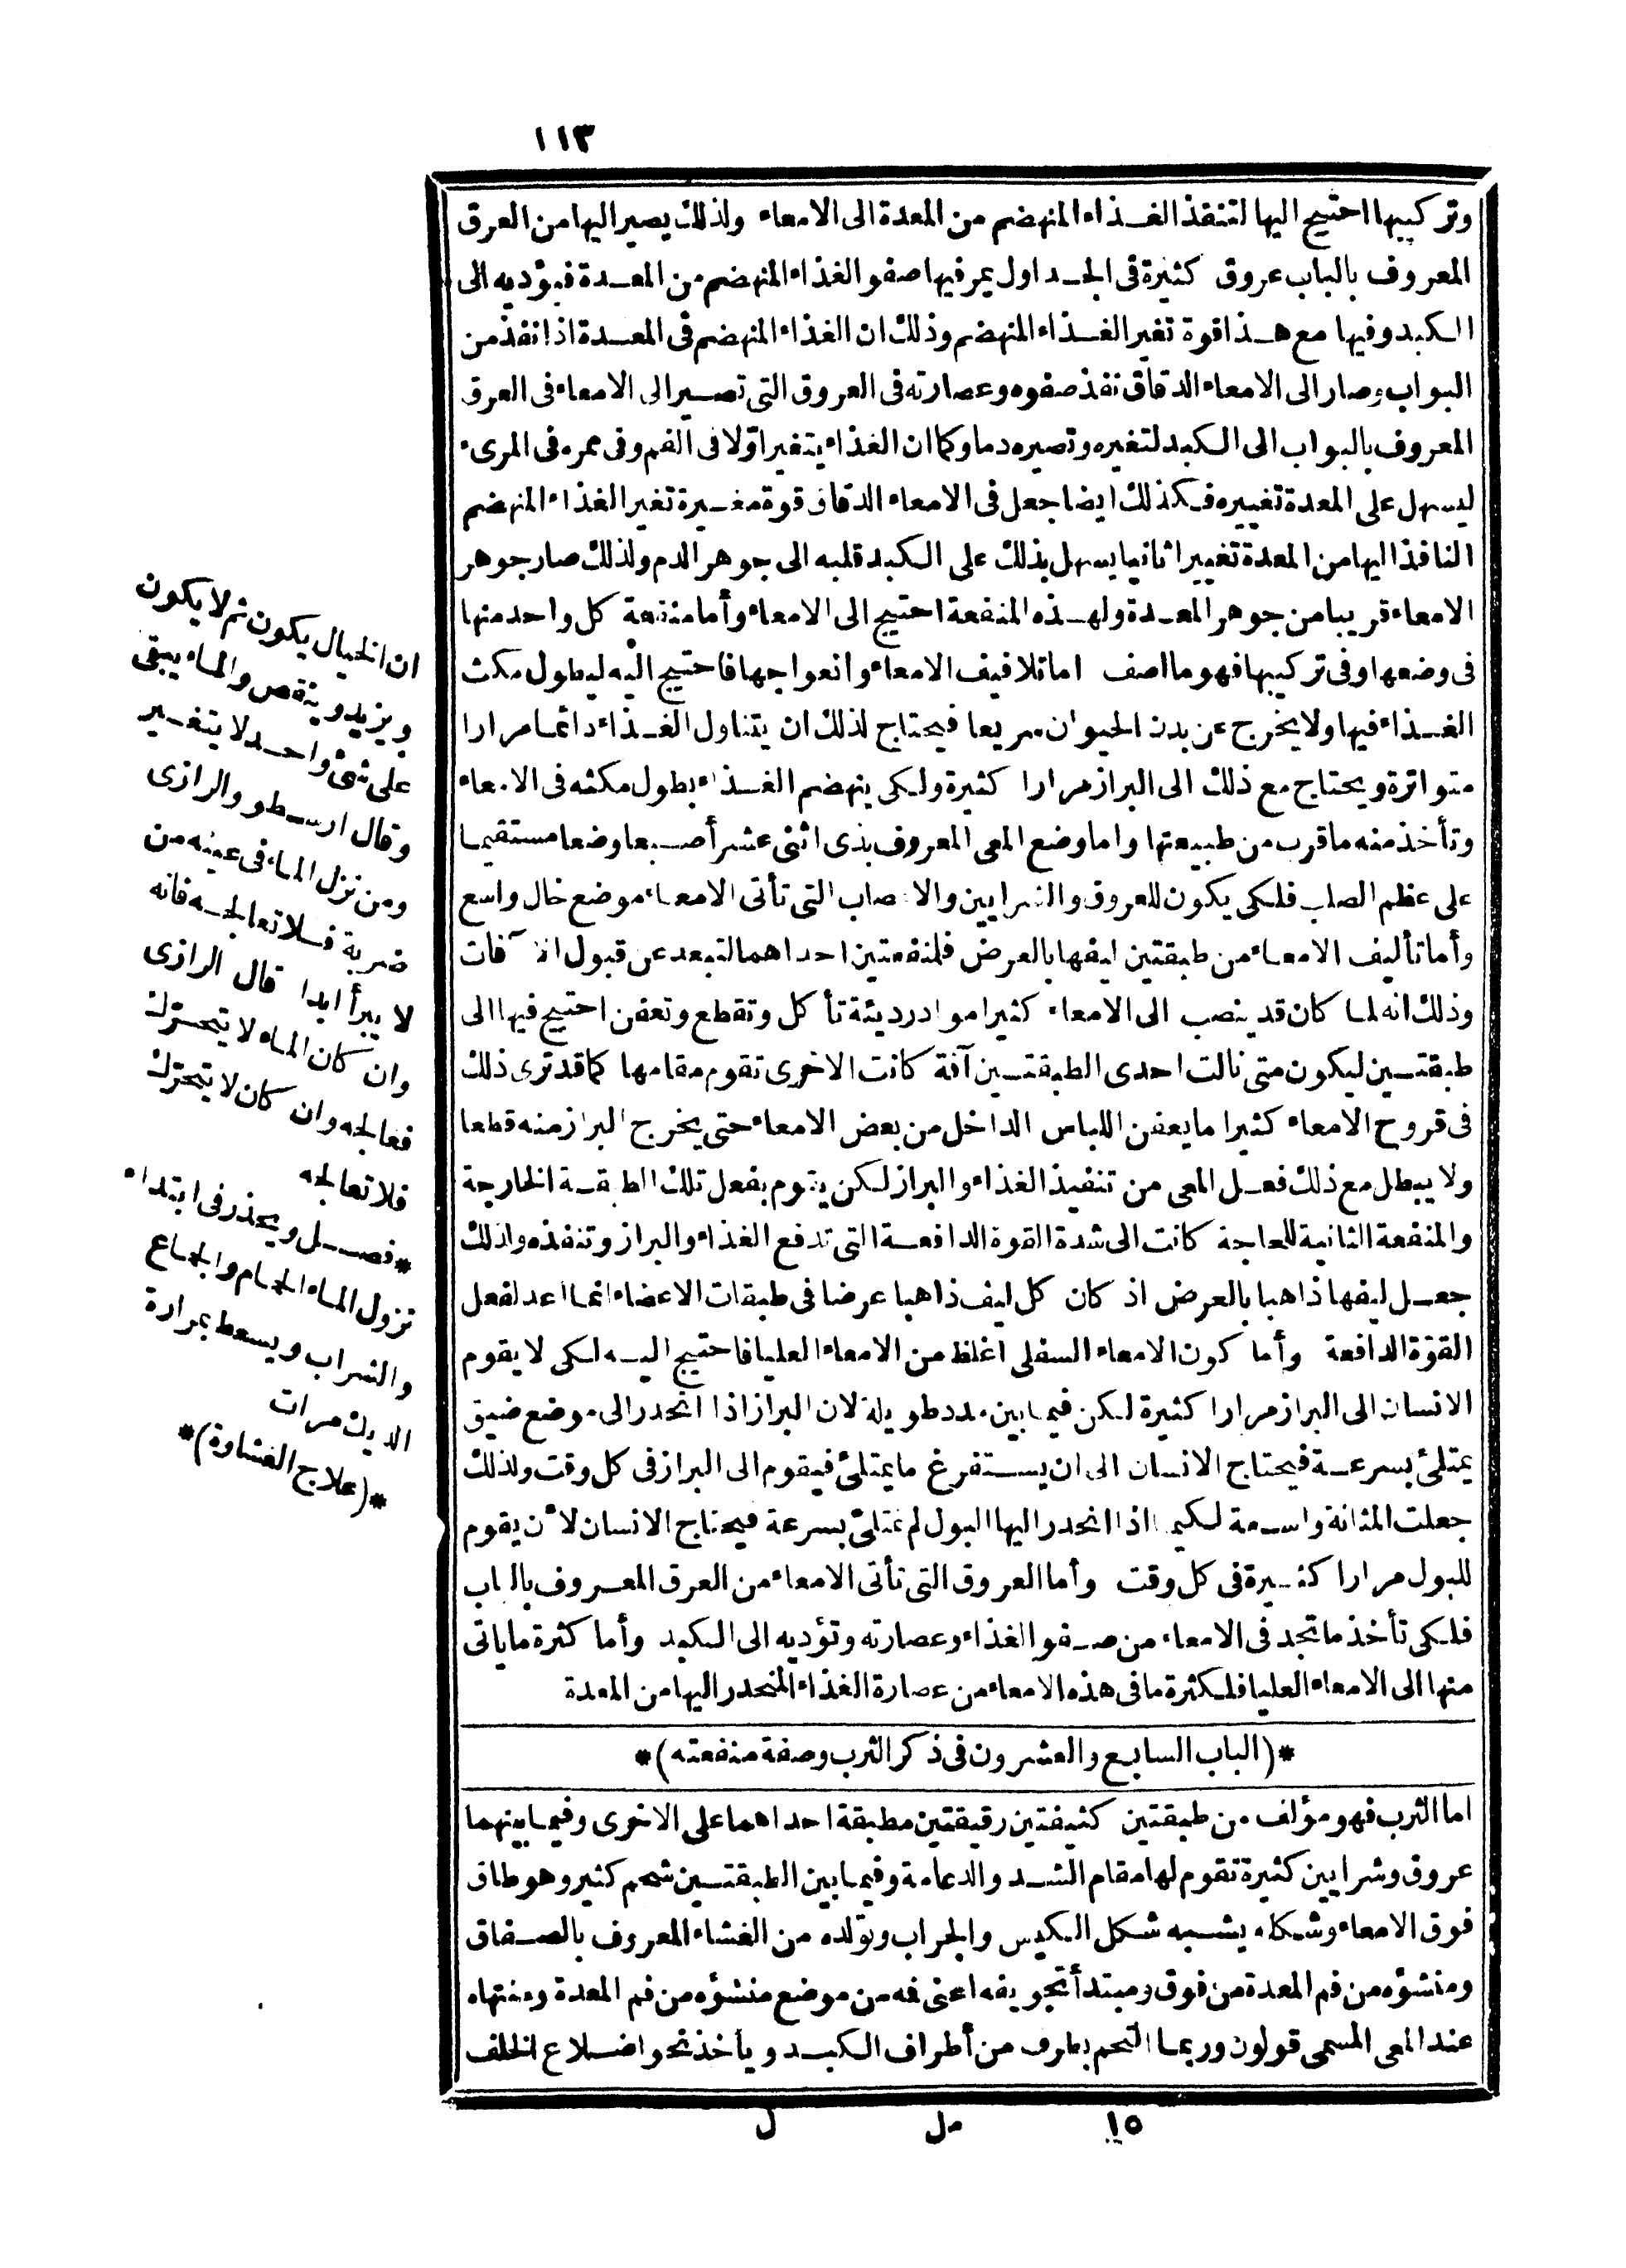 ١١٣
وتركيبها احتيج اليها لتنفذ الغذاء المنهضم من المعدة الى الامعاء ولذلك يصير اليها من العرق
المعروف بالباب عروق كثيرة فى الجداول يمر فيها صفو الغذاء المنهضم من المعدة فيؤديه الى
الكبد وفيها مع هذا قوة تغير الغذاء المنهضم وذلك ان الغذاء المنهضم فى المعدة اذا نفذ من
البواب وصار الى الامعاء الدقاق نفذ صفوه وعصارته فى العروق التى تصير الى الامعاء فى العرق
المعروف بالبواب الى الكبد لتغيره وتصيره دما وكما ان الغذاء يتغير اوّلا فى الفم وفى ممره فى المرىء
ليسهل على المعدة تغييره فكذلك ايضا جعل فى الامعاء الدقاق قوة مغيرة تغير الغذاء المنهضم
النافذ اليها من المعدة تغييرا ثانيا يسهل بذلك على الكبد قلبه الى جوهر الدم ولذلك صار جوهر
الامعاء قريبا من جوهر المعدة ولهذه المنفعة احتيج الى الامعاء وأما منفعة كل واحد منها
فى وضعها وفى تركيبها فهو ما اصف اما تلافيف الامعاء وانعواجها فاحتيج اليه ليطول مكث
الغذاء فيها ولا يخرج عن بدن الحيوان سريعا فيحتاج لذلك ان يتناول الغذاء دائما مرارا
متواترة ويحتاج مع ذلك الى البراز مرارا كثيرة ولكى ينهضم الغذاء بطول مكثه فى الامعاء
وتأخذ منه ما قرب من طبيعتها واما وضع المعى المعروف بذى اثنى عشر أصبعا وضعا مستقيما
على عظم الصلب فلكى يكون للعروق والشرايين والاعصاب التى تأتى الامعاء موضع خال واسع
وأما تأليف الامعاء من طبقتين ليفها بالعرض فلمنفعتين احداهما لتبعد عن قبول الآفات
وذلك انه لما كان قد ينصب الى الامعاء كثيرا مواد رديئة تأكل وتقطع وتعفن احتيج فيها الى
طبقتين ليكون متى نالت احدى الطبقتين آفة كانت الاخرى تقوم مقامها كما قد ترى ذلك
فى قروح الامعاء كثيرا ما يعفن اللباس الداخل من بعض الامعاء حتى يخرج البراز منه قطعا
ولا يبطل مع ذلك فعل المعى من تنفيذ الغذاء والبراز لكن يقوم بفعل تلك الطبقة الخارجة
والمنفعة الثانية للحاجة كانت الى شدة القوة الدافعة التى تدفع الغذاء والبراز وتنفذه ولذلك
جعل ليفها ذاهبا بالعرض اذ كان كل ليف ذاهبا عرضا فى طبقات الاعضاء انما اعد لفعل
القوّة الدافعة وأما كون الامعاء السفلى اغلظ من الامعاء العليا فاحتيج اليه لكى لا يقوم
الانسان الى البراز مرارا كثيرة لكن فيما بين مدد طويلة لان البراز اذا انحدر الى موضع ضيق
يمتلئ بسرعة فيحتاج الانسان الى ان يستفرغ ما يمتلئ فيقوم الى البراز فى كل وقت ولذلك
جعلت المثانة واسعة لكيما اذا انحدر اليها البول لم تمتلئ بسرعة فيحتاج الانسان لأن يقوم
للبول مرارا كثيرة فى كل وقت وأما العروق التى تأتى الامعاء من العرق المعروف بالباب
فلكى تأخذ ما تجد فى الامعاء من صفو الغذاء وعصارته وتؤديه الى الكبد وأما كثرة ما ياتى
منها الى الامعاء العليا فلكثرة ما فى هذه الامعاء من عصارة الغذاء المنحدر اليها من المعدة
*(الباب السابع والعشرون فى ذكر الثرب وصفة منفعته)*
اما الثرب فهو مؤلف من طبقتين كثيفتين رقيقتين مطبقة احداهما على الاخرى وفيما بينهما
عروق وشرايين كثيرة تقوم لها مقام الشد والدعامة وفيما بين الطبقتين شحم كثير وهو طاف
فوق الامعاء وشكله يشبه شكل الكيس والجراب وتولده من الغشاء المعروف بالصفاق
ومنشؤه من فم المعدة من فوق ومبتدأ تجويفه اعنى فمه من موضع منشؤه من فم المعدة ومنتهاه
عند المعى المسمى قولون وربما التحم بطرف من أطراف الكبد ويأخذ نحو اضلاع الخلف
ان الخيال يكون ثم لا يكون
ويزيد وينقص والماء يبقى
على شئ واحد لا يتغير
وقال ارسطو والرازى
ومن نزل الماء فى عينه من
ضربة فلا تعالجه فانه
لا يبرأ ابدا قال الرازى
وان كان الماء لا يتحرّك
فعالجه وان كان لا يتحرّك
فلا تعالجه
*فصل ويحذر فى ابتداء
نزول الماء الحمام والجماع
والشراب ويسعط بمرارة
الديك مرات
*(علاج الغشاوة)*
١٥ مل ل